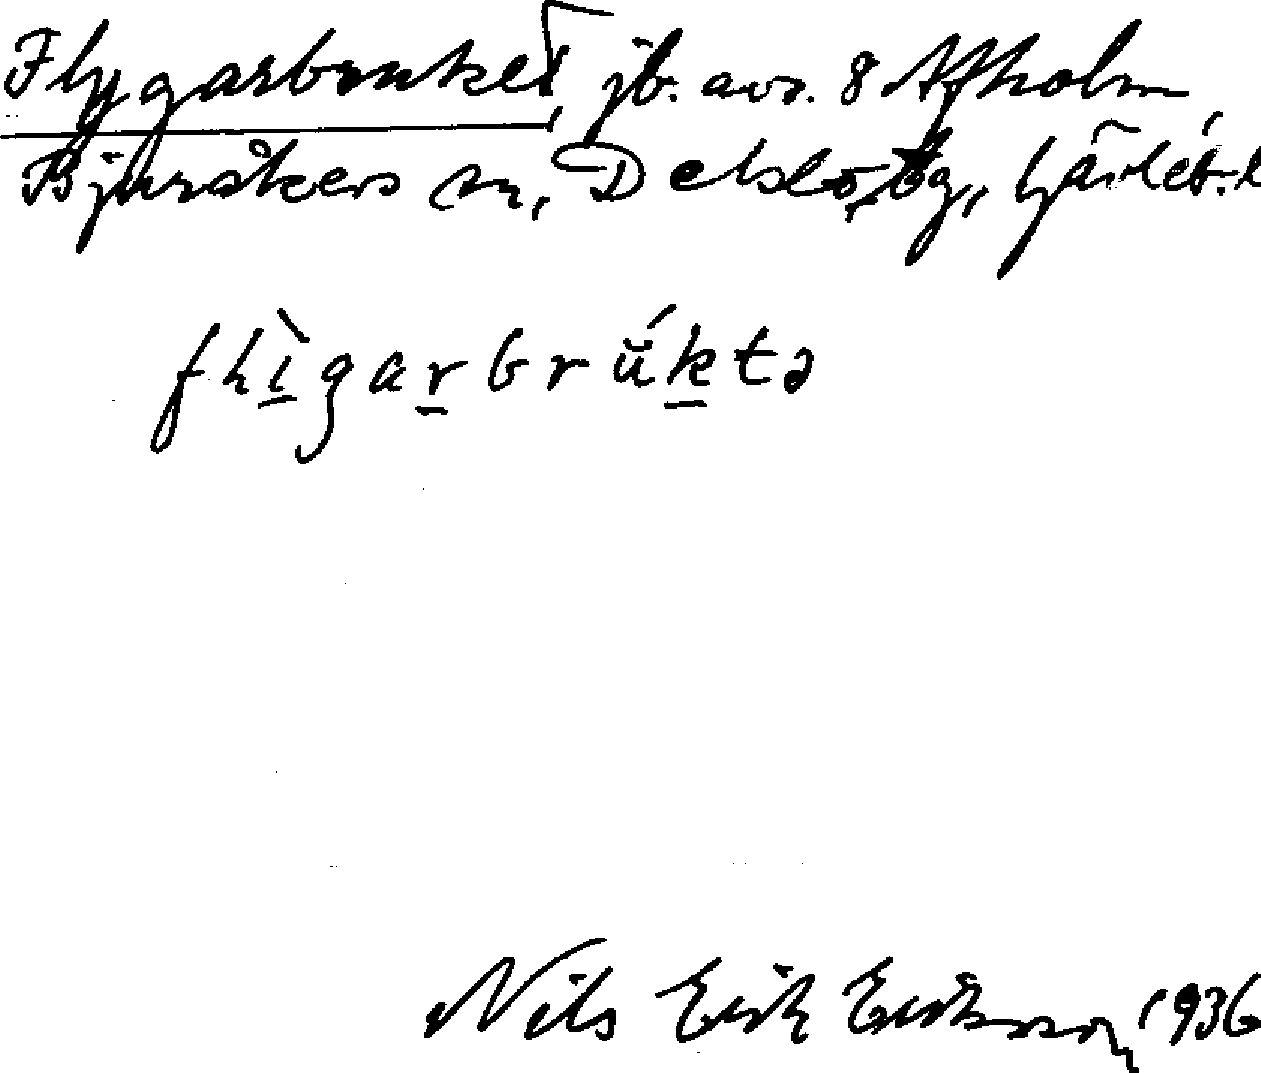 Flygarbruket, jb. avs. 8 Afholm
Bjuråkers sn, Delsbo tg, Gävleb. l
flìgarbrúktə
Nils Erik Eriksson 1936